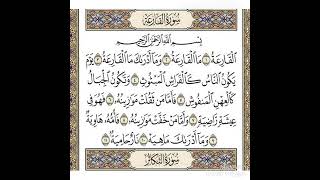 سُورَةُ القَارِعَةِ
بِسْمِ اللَّهِ الرَّحْمَٰنِ الرَّحِيمِ
الْقَارِعَةُ ١ مَا الْقَارِعَةُ ٢ وَمَا أَدْرَىٰكَ مَا الْقَارِعَةُ ٣ يَوْمَ
يَكُونُ النَّاسُ كَالْفَرَاشِ الْمَبْثُوثِ ٤ وَتَكُونُ الْجِبَالُ
كَالْعِهْنِ الْمَنفُوشِ ٥ فَأَمَّا مَن ثَقُلَتْ مَوَٰزِينُهُۥ ٦ فَهُوَ فِي
عِيشَةٍ رَّاضِيَةٍ ٧ وَأَمَّا مَنْ خَفَّتْ مَوَٰزِينُهُۥ ٨ فَأُمُّهُۥ هَاوِيَةٌ
٩ وَمَا أَدْرَىٰكَ مَا هِيَهْ ١٠ نَارٌ حَامِيَةٌ ١١
سُورَةُ التَّكَاثُرِ